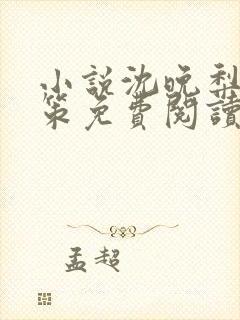 小說沈晚梨
策免費閱讀
孟超